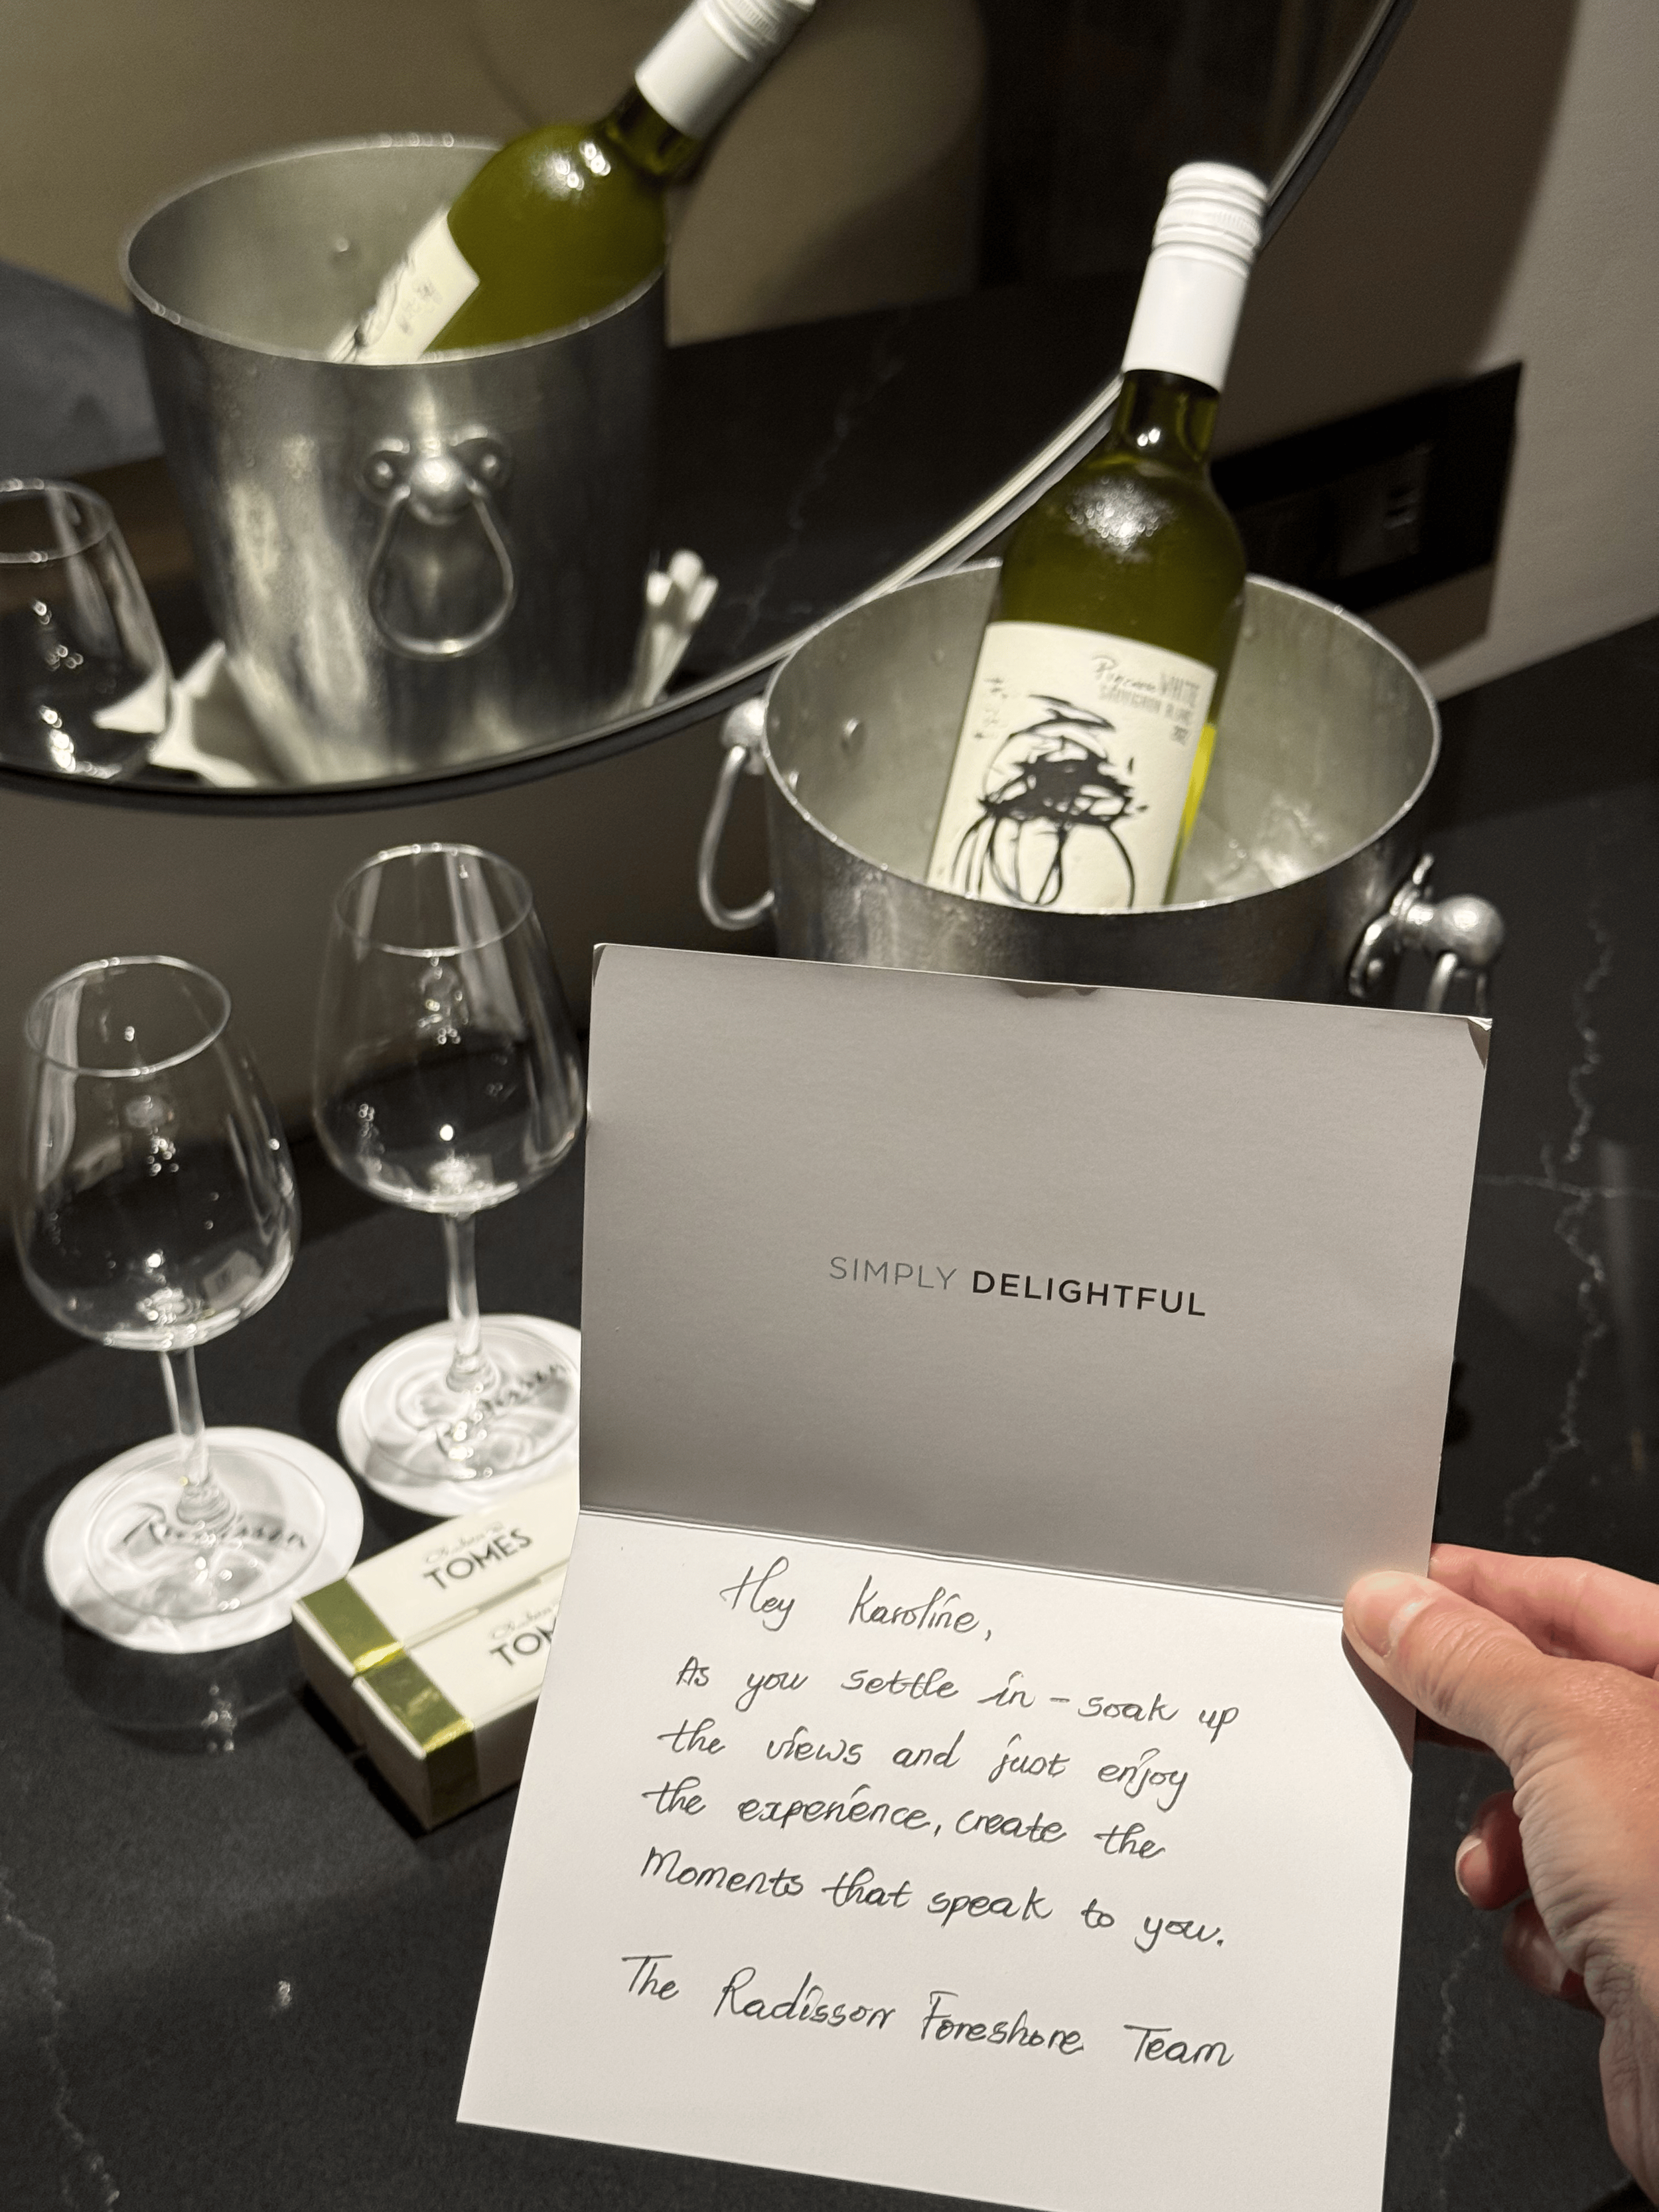 WHITE
SAUVIGNON BLANC
SIMPLY DELIGHTFUL
Radisson
Radisson
TOMES
TOM
Hey Karoline,
As you settle in - soak up
the views and just enjoy
the experience, create the
Moments that speak to you.
The Radisson Foreshore Team